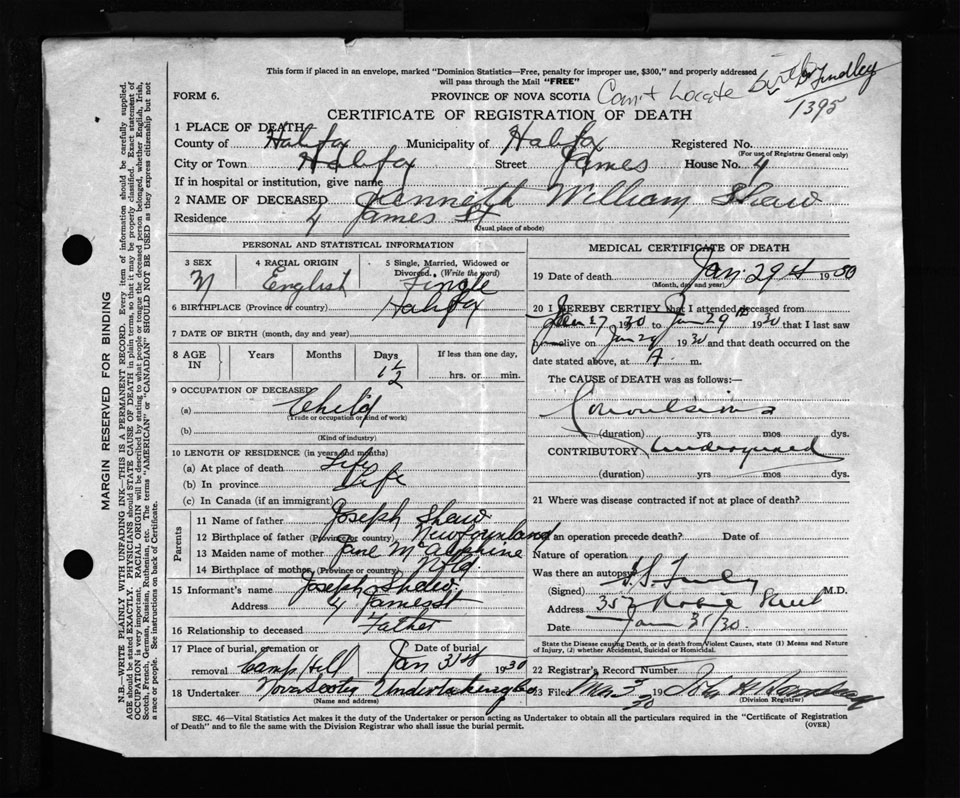 This form if placed in an envelope, marked "Dominion Statistics—Free, penalty for improper use, $300," and properly addressed
will pass through the Mail "FREE"
FORM 6. PROVINCE OF NOVA SCOTIA Can't Locate birth Findley
1395
CERTIFICATE OF REGISTRATION OF DEATH
1 PLACE OF DEATH
County of Halifax Municipality of Halifax Registered No.
(For use of Registrar General only)
City or Town Halifax Street James House No. 4
If in hospital or institution, give name
2 NAME OF DECEASED Kenneth William Shaw
Residence 4 James St
(Usual place of abode)
PERSONAL AND STATISTICAL INFORMATION
3 SEX 4 RACIAL ORIGIN 5 Single, Married, Widowed or Divorced. (Write the word)
M English Single
6 BIRTHPLACE (Province or country) Halifax
7 DATE OF BIRTH (month, day and year)
8 AGE IN Years Months Days If less than one day,
1 1/2 hrs. or min.
9 OCCUPATION OF DECEASED
(a) Child
(Trade or occupation or kind of work)
(b)
(Kind of industry)
10 LENGTH OF RESIDENCE (in years and months)
(a) At place of death Life
(b) In province Life
(c) In Canada (if an immigrant)
Parents
11 Name of father Joseph Shaw
12 Birthplace of father (Province or country) Newfounland
13 Maiden name of mother Jane McAlphine
14 Birthplace of mother (Province or country) Nfld.
15 Informant's name Joseph Shaw
Address 4 James St
16 Relationship to deceased Father
17 Place of burial, cremation or removal Camp Hill Date of burial Jan 31st 1930
18 Undertaker Nova Scotia Undertaking Co
(Name and address)
MEDICAL CERTIFICATE OF DEATH
19 Date of death Jan. 29th 1930
(Month, day and year)
20 I HEREBY CERTIFY that I attended deceased from
Jan 17 1930 to Jan 29th 1930 that I last saw
h alive on Jan 29 1930 and that death occurred on the
date stated above, at A. m.
The CAUSE OF DEATH was as follows:—
Convulsions
(duration) yrs mos dys.
CONTRIBUTORY
(duration) yrs mos dys.
21 Where was disease contracted if not at place of death?
an operation precede death? Date of
Nature of operation
Was there an autopsy?
(Signed) M.D.
Address 357 Robie Street
Date Jan 31/30.
State the Disease causing Death, or in death from Violent Causes, state (1) Means and Nature
of Injury, (2) whether Accidental, Suicidal or Homicidal.
22 Registrar's Record Number
23 Filed Mar 3 1930
(Division Registrar)
SEC. 46—Vital Statistics Act makes it the duty of the Undertaker or person acting as Undertaker to obtain all the particulars required in the "Certificate of Registration
of Death" and to file the same with the Division Registrar who shall issue the burial permit. (OVER)
MARGIN RESERVED FOR BINDING
N.B.—WRITE PLAINLY WITH UNFADING INK—THIS IS A PERMANENT RECORD. Every item of information should be carefully supplied.
AGE should be stated EXACTLY. PHYSICIANS should STATE CAUSE OF DEATH in plain terms, so that it may be properly classified. Exact statement of
OCCUPATION is very important. RACIAL ORIGIN will be described by stating to what people or tongue the deceased person belonged, whether English, Irish,
Scotch, French, German, Russian, Ruthenian, etc. The terms "AMERICAN" or "CANADIAN" SHOULD NOT BE USED as they express citizenship but not
a race or people. See instructions on back of Certificate.